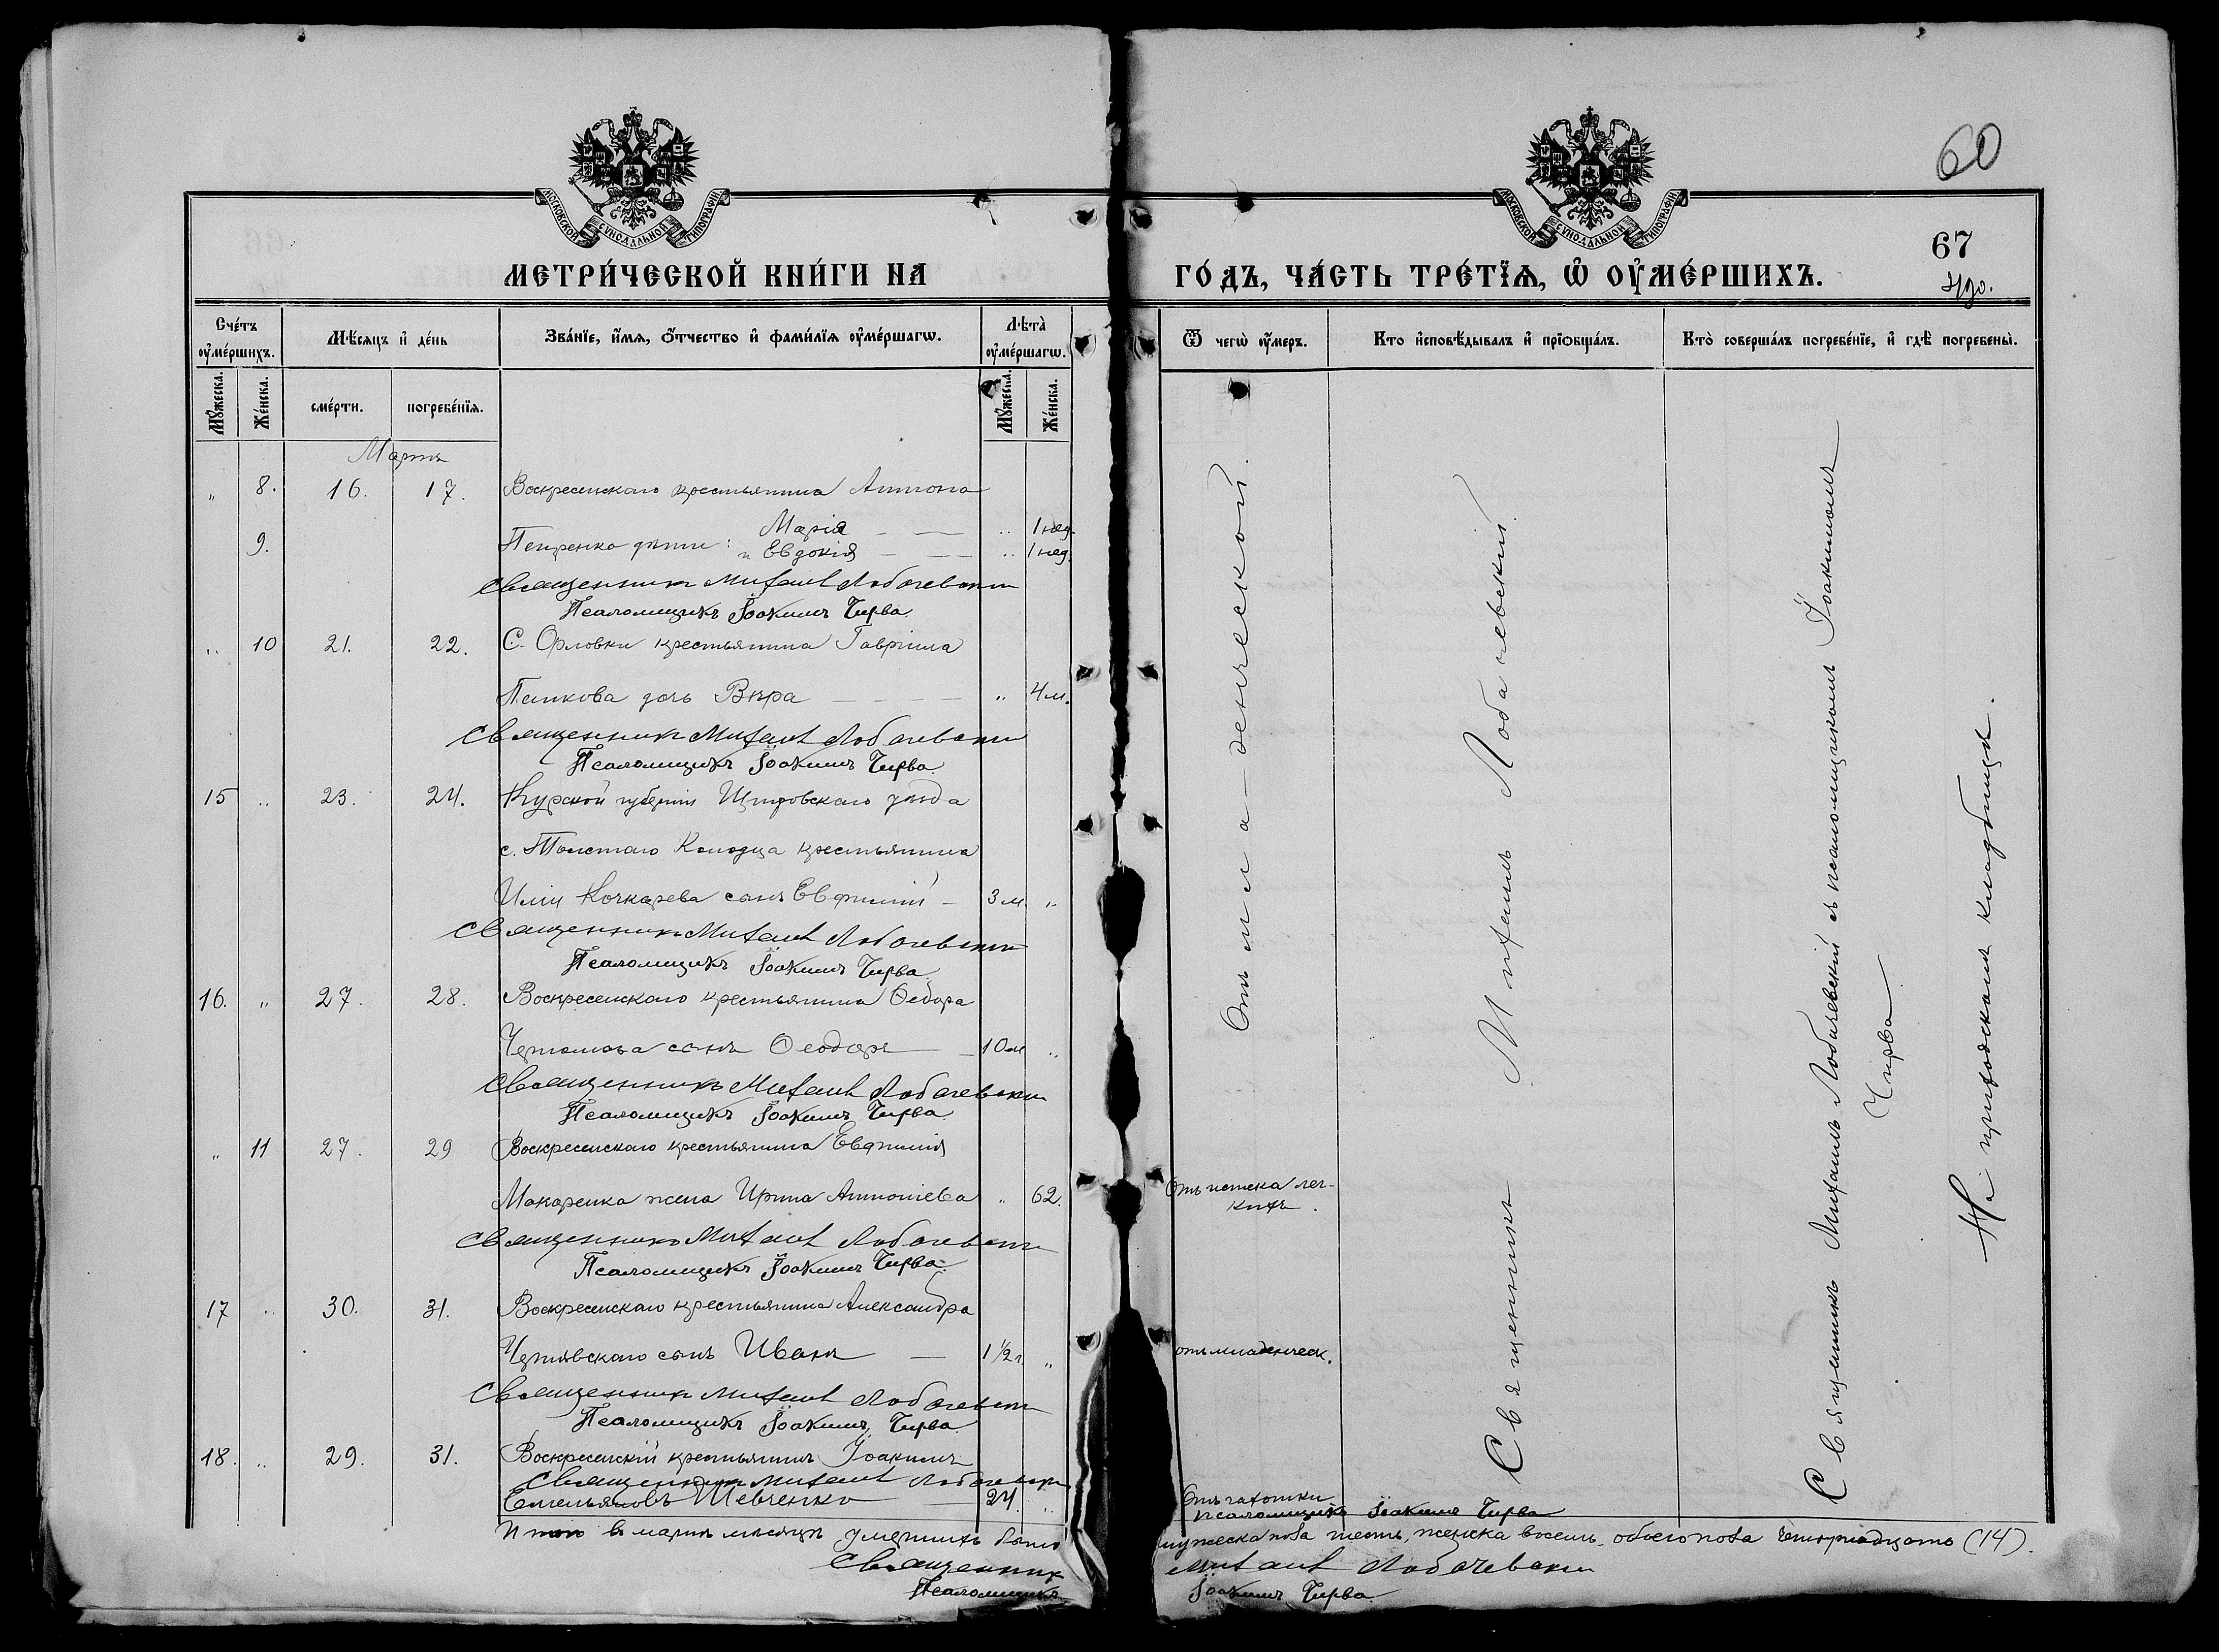 60
МОСКОВСКОЙ СѴНОДАЛЬНОЙ ТИПОГРАФІИ
МОСКОВСКОЙ СѴНОДАЛЬНОЙ ТИПОГРАФІИ
67
МЕТРИ́ЧЕСКОЙ КНИ́ГИ НА
ГО́ДЪ, ЧА́СТЬ ТРЕ́ТЇѦ, Ѡ҆ ОУ҆МЕ́РШИХЪ.
Сче́тъ оу҆ме́ршихъ.
Мѣ́сяцъ и҆ де́нь
Зва́нїе, и҆́мѧ, ѻ҆́тчество и҆ фами́лїѧ оу҆ме́ршагѡ.
Лѣта̀ оу҆ме́ршагѡ.
Ѿ чегѡ̀ оу҆́меръ.
Кто̀ и҆сповѣ́дывалъ и҆ прїѡбща́лъ.
Кто̀ соверша́лъ погребе́нїе, и҆ гдѣ̀ погребены̀.
Мꙋ́жеска.
Же́нска.
сме́рти.
погребе́нїѧ.
Мꙋ́жеска.
Же́нска.
Марта
" 8. 16. 17. Воскресенскаго крестьянина Антона
9. Петренко дѣти: Марія — — " 1 нед.
и Евдокія — — " 1 нед.
Священникъ Михаилъ Лобачевскій
Псаломщикъ Іоакимъ Чирва
" 10 21. 22. С. Орловки крестьянина Гавріила
Папкова дочь Вѣра — — — " 4 м.
Священникъ Михаилъ Лобачевскій
Псаломщикъ Іоакимъ Чирва
15 " 23. 24. Курской губерніи Щигровскаго уѣзда
с. Толстаго Колодца крестьянина
Иліи Кочкарева сынъ Евфимій — 3 м. "
Священникъ Михаилъ Лобачевскій
Псаломщикъ Іоакимъ Чирва
16. " 27. 28. Воскресенскаго крестьянина Ѳедора
сынъ Ѳеодоръ — 10 м. "
Священникъ Михаилъ Лобачевскій
Псаломщикъ Іоакимъ Чирва
" 11 27. 29 Воскресенскаго крестьянина Евфимія
Макаренка жена Ирина Антоніева " 62.
Отъ отека лег-
кихъ.
Священникъ Михаилъ Лобачевскій
Псаломщикъ Іоакимъ Чирва
17 " 30. 31. Воскресенскаго крестьянина Александра
Чернявскаго сынъ Иванъ — 1 ½ г. "
отъ младенческ.
Священникъ Михаилъ Лобачевскій
Псаломщикъ Іоакимъ Чирва
18. " 29. 31. Воскресенскій крестьянинъ Іоакимъ
Священникъ Михаилъ Лобачевскій
Емельяновъ Шевченко — 24. "
Отъ чахотки
Псаломщикъ Іоакимъ Чирва
Отъ младенческой.
Священникъ Михаилъ Лобачевскій.
Священникъ Михаилъ Лобачевскій съ псаломщикомъ Іоакимомъ
Чирва
На приходскомъ кладбищѣ.
Итого въ мартѣ мѣсяцѣ умершихъ было мужеска пола шесть, женска восемь, обоего пола четырнадцать (14).
Священникъ Михаилъ Лобачевскій
Псаломщикъ Іоакимъ Чирва